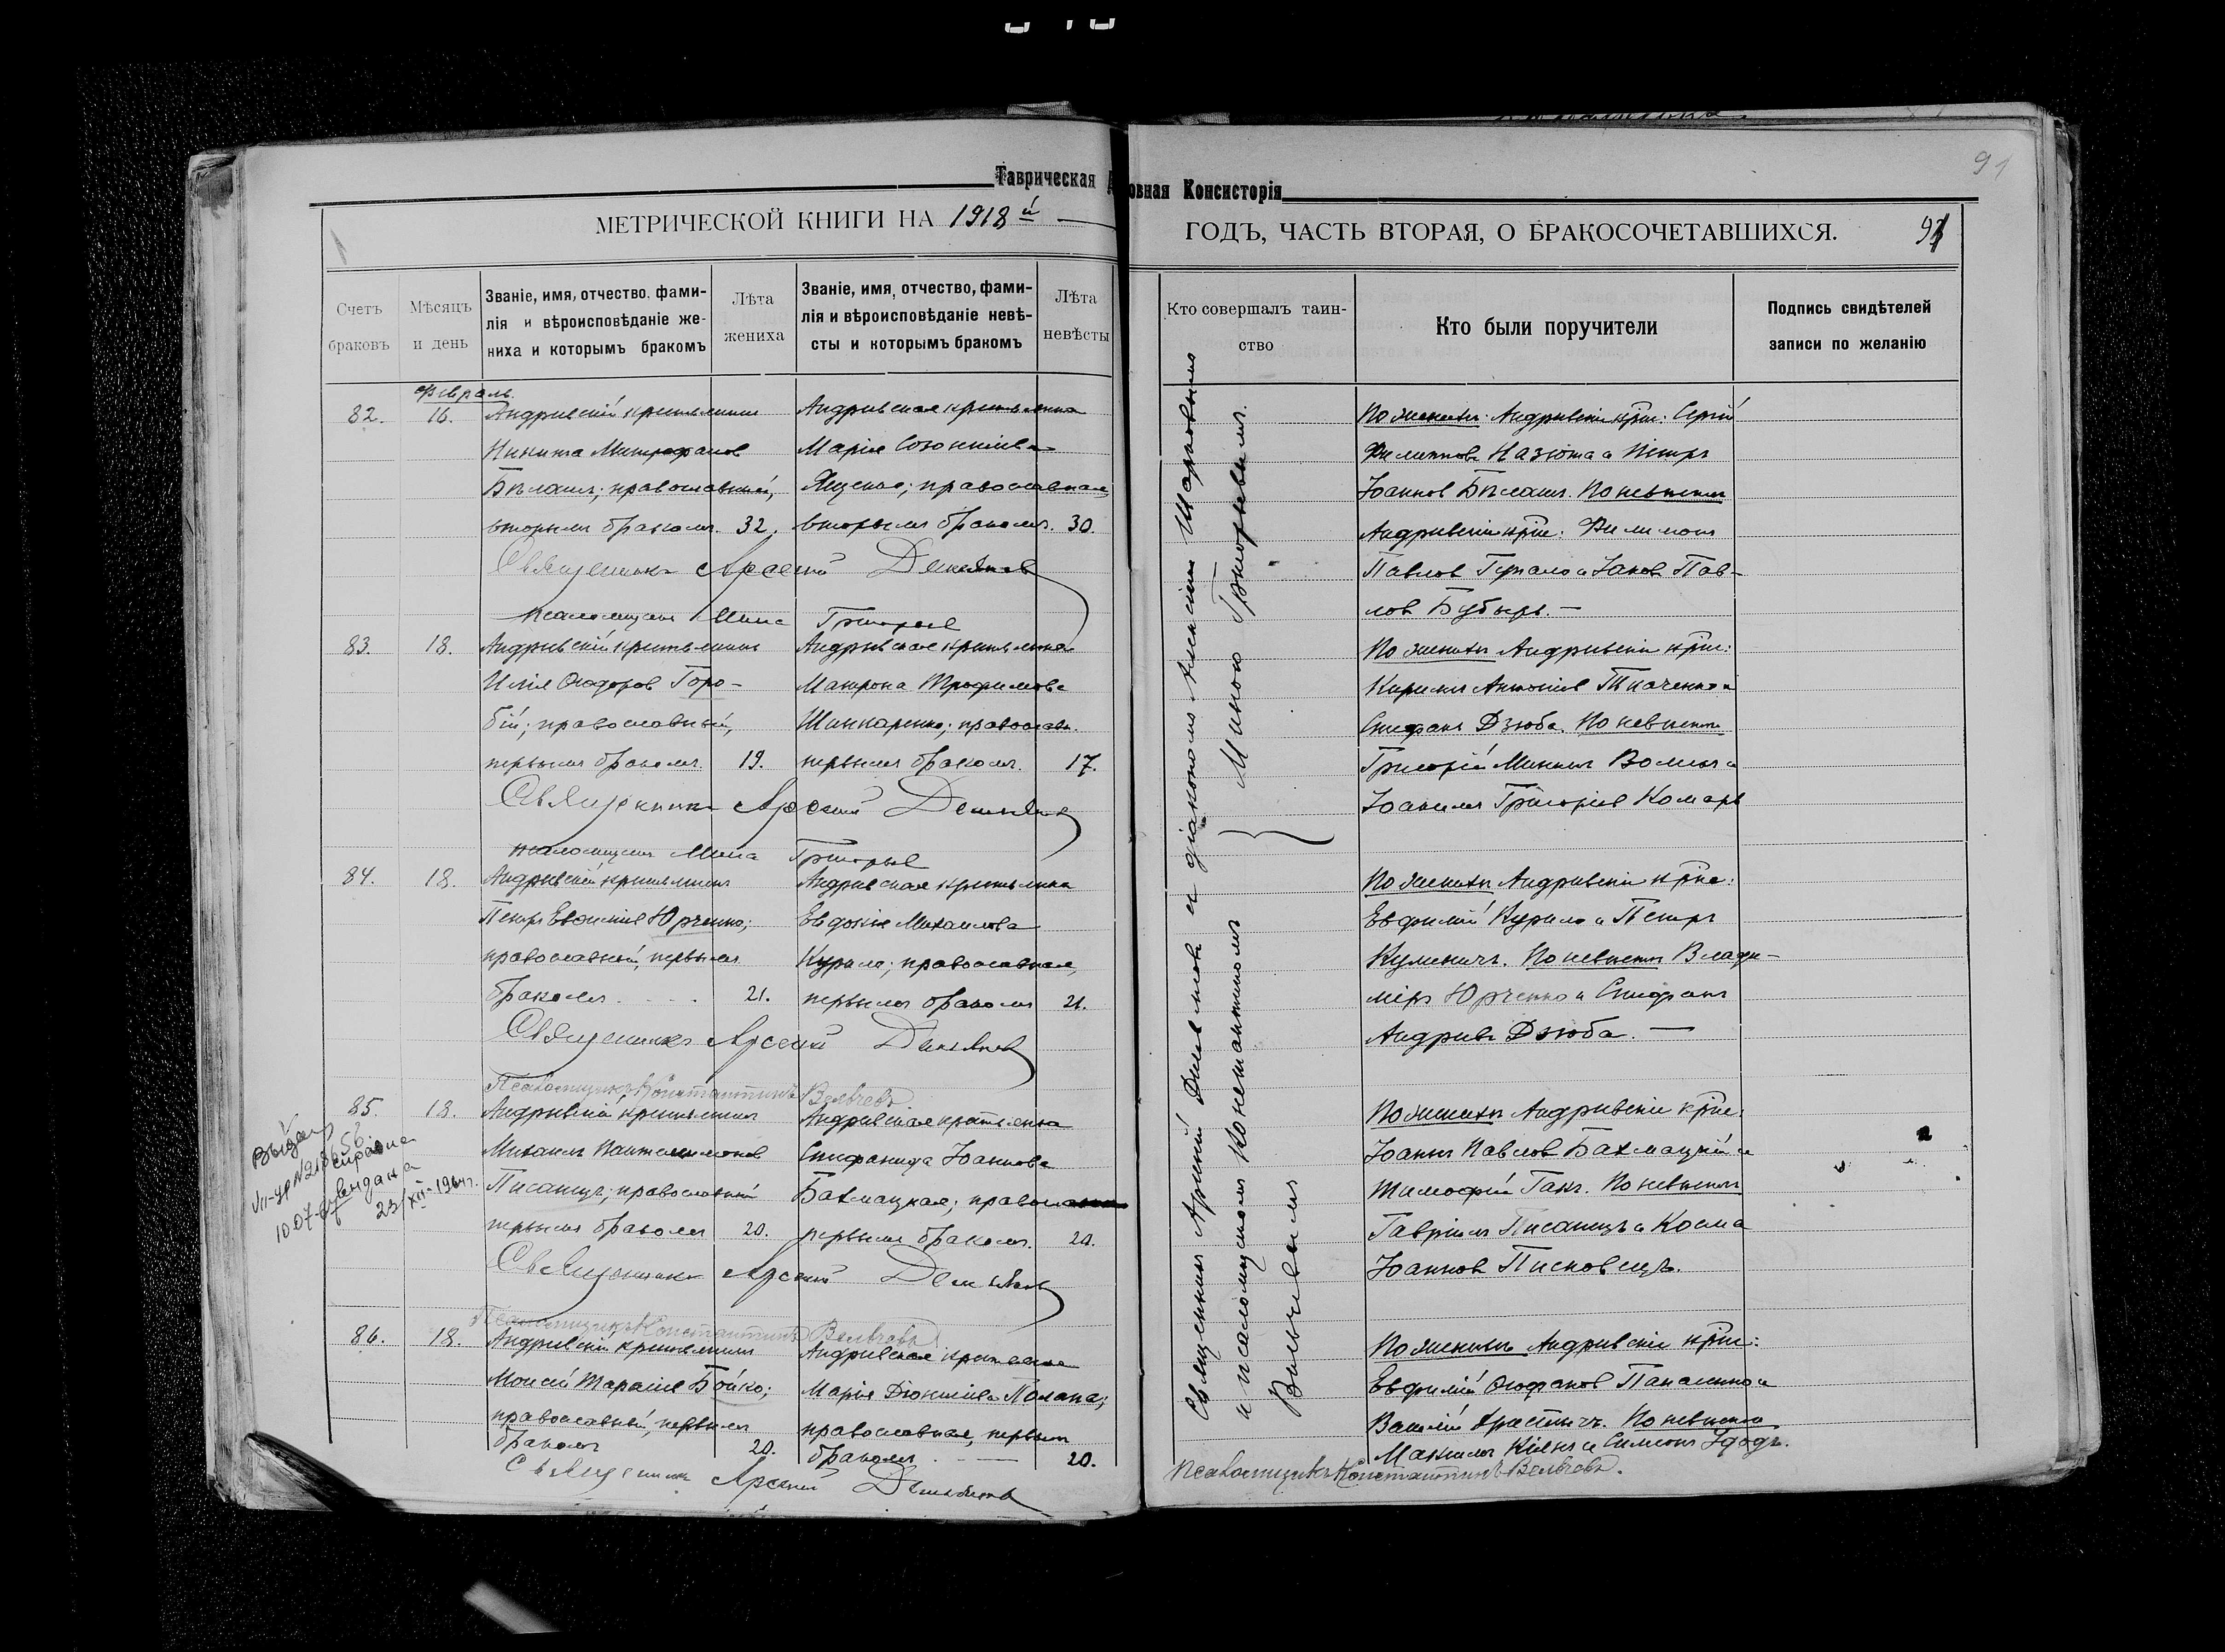 91
Таврическая Духовная Консисторія
МЕТРИЧЕСКОЙ КНИГИ НА 1918й
ГОДЪ, ЧАСТЬ ВТОРАЯ, О БРАКОСОЧЕТАВШИХСЯ. 91
Счетъ браковъ
Мѣсяцъ и день
Званіе, имя, отчество, фами-
лія и вѣроисповѣданіе же-
ниха и которымъ бракомъ
Лѣта
жениха
Званіе, имя, отчество, фами-
лія и вѣроисповѣданіе невѣ-
сты и которымъ бракомъ
Лѣта
невѣсты
Кто совершалъ таин-
ство
Кто были поручители
Подпись свидѣтелей
записи по желанію
Февраль
82. 16.
Андреевскій крестьянинъ
Никита Митрофановъ
Бѣлашъ; православный,
вторымъ бракомъ. 32.
Андреевская крестьянка
Марія
Яценко; православная,
вторымъ бракомъ. 30.
По женихѣ: Андреевскіе крест: Сергій
Филипповъ Назюта и Петръ
Іоанновъ Бѣлашъ. По невѣстѣ
Андреевскіе крест: Филимонъ
Павловъ и Іаковъ Пав-
ловъ Бубырь. —
Священникъ Арсеній Демьяновъ
Псаломщикъ Мина Григорьев
83. 18.
Андреевскій крестьянинъ
Илія Ѳеодоровъ Горо-
бій; православный,
первымъ бракомъ. 19.
Андреевская крестьянка
Матрона Трофимова
Шинкаренко; православ.
первымъ бракомъ. 17.
По женихѣ Андреевскіе крест:
Кириллъ Антоніевъ Ткаченко и
Стефанъ Дзюба. По невѣстѣ
Григорій Мининъ и
Іоакимъ Григоріевъ Комаръ
Священникъ Арсеній Демьяновъ
псаломщикъ Мина Григорьев
84. 18.
Андреевскій крестьянинъ
Петръ Юрченко;
православный, первымъ
бракомъ. 21.
Андреевская крестьянка
Евдокія Михаилова
Курило; православная,
первымъ бракомъ 21.
По женихѣ Андреевскіе крест:
Евфимій Курило и Петръ
Кулиничъ. По невѣстѣ Влади-
міръ Юрченко и Стефанъ
Андреевъ Дзюба. —
Священникъ Арсеній Демьяновъ
Псаломщикъ Константинъ Вельчевъ
85. 18.
Андреевскій крестьянинъ
Михаилъ Пантелеимоновъ
Писанецъ; православный
первымъ бракомъ 20.
Андреевская крестьянка
Стефанида Іоаннова
Бахмацкая; православ
первымъ бракомъ. 20.
По женихѣ Андреевскіе крест:
Іоаннъ Павловъ Бахмацкій и
Тимофей Гакъ. По невѣстѣ
Гавріилъ Писанецъ и Косма
Іоанновъ Писковецъ.
Выдан
справка
23/XII-1964г.
Священникъ Арсеній Демьяновъ
Псаломщикъ Константинъ Вельчевъ
86. 18.
Андреевскій крестьянинъ
Моисей Тарасіевъ Бойко;
православный, первымъ
бракомъ 20.
Андреевская крестьянка
Марія Діонисіева;
православная, первымъ
бракомъ. — 20.
По женихѣ Андреевскіе крест:
Евфимій Ѳеофановъ Панасенко и
Василій. По невѣстѣ
Максимъ и Симеонъ
Священникъ Арсеній Демьяновъ
Псаломщикъ Константинъ Вельчевъ.
Священникъ Арсеній Демьяновъ съ діакономъ Алексіемъ
и псаломщикомъ Константиномъ } Миною Григорьевымъ.
Вельчевымъ